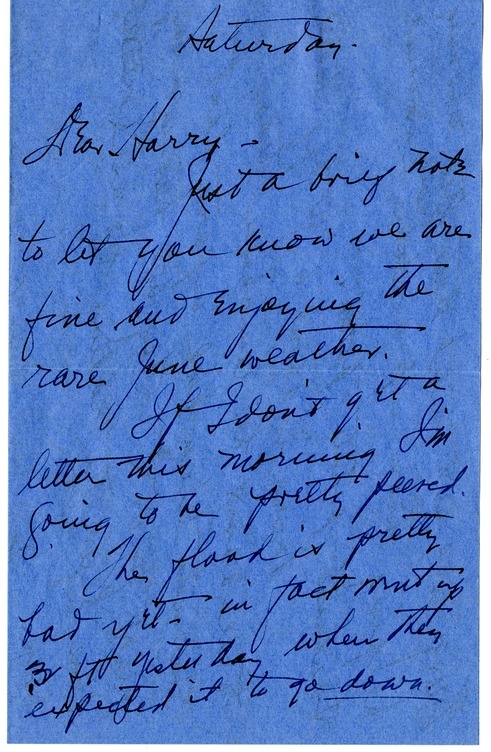 Saturday.
Dear Harry -
Just a brief note
to let you know we are
fine and enjoying the
rare June weather.
If I don't get a
letter this morning I'm
going to be pretty peeved.
The flood is pretty
bad yet - in fact went up
3 ft yesterday when they
expected it to go down.